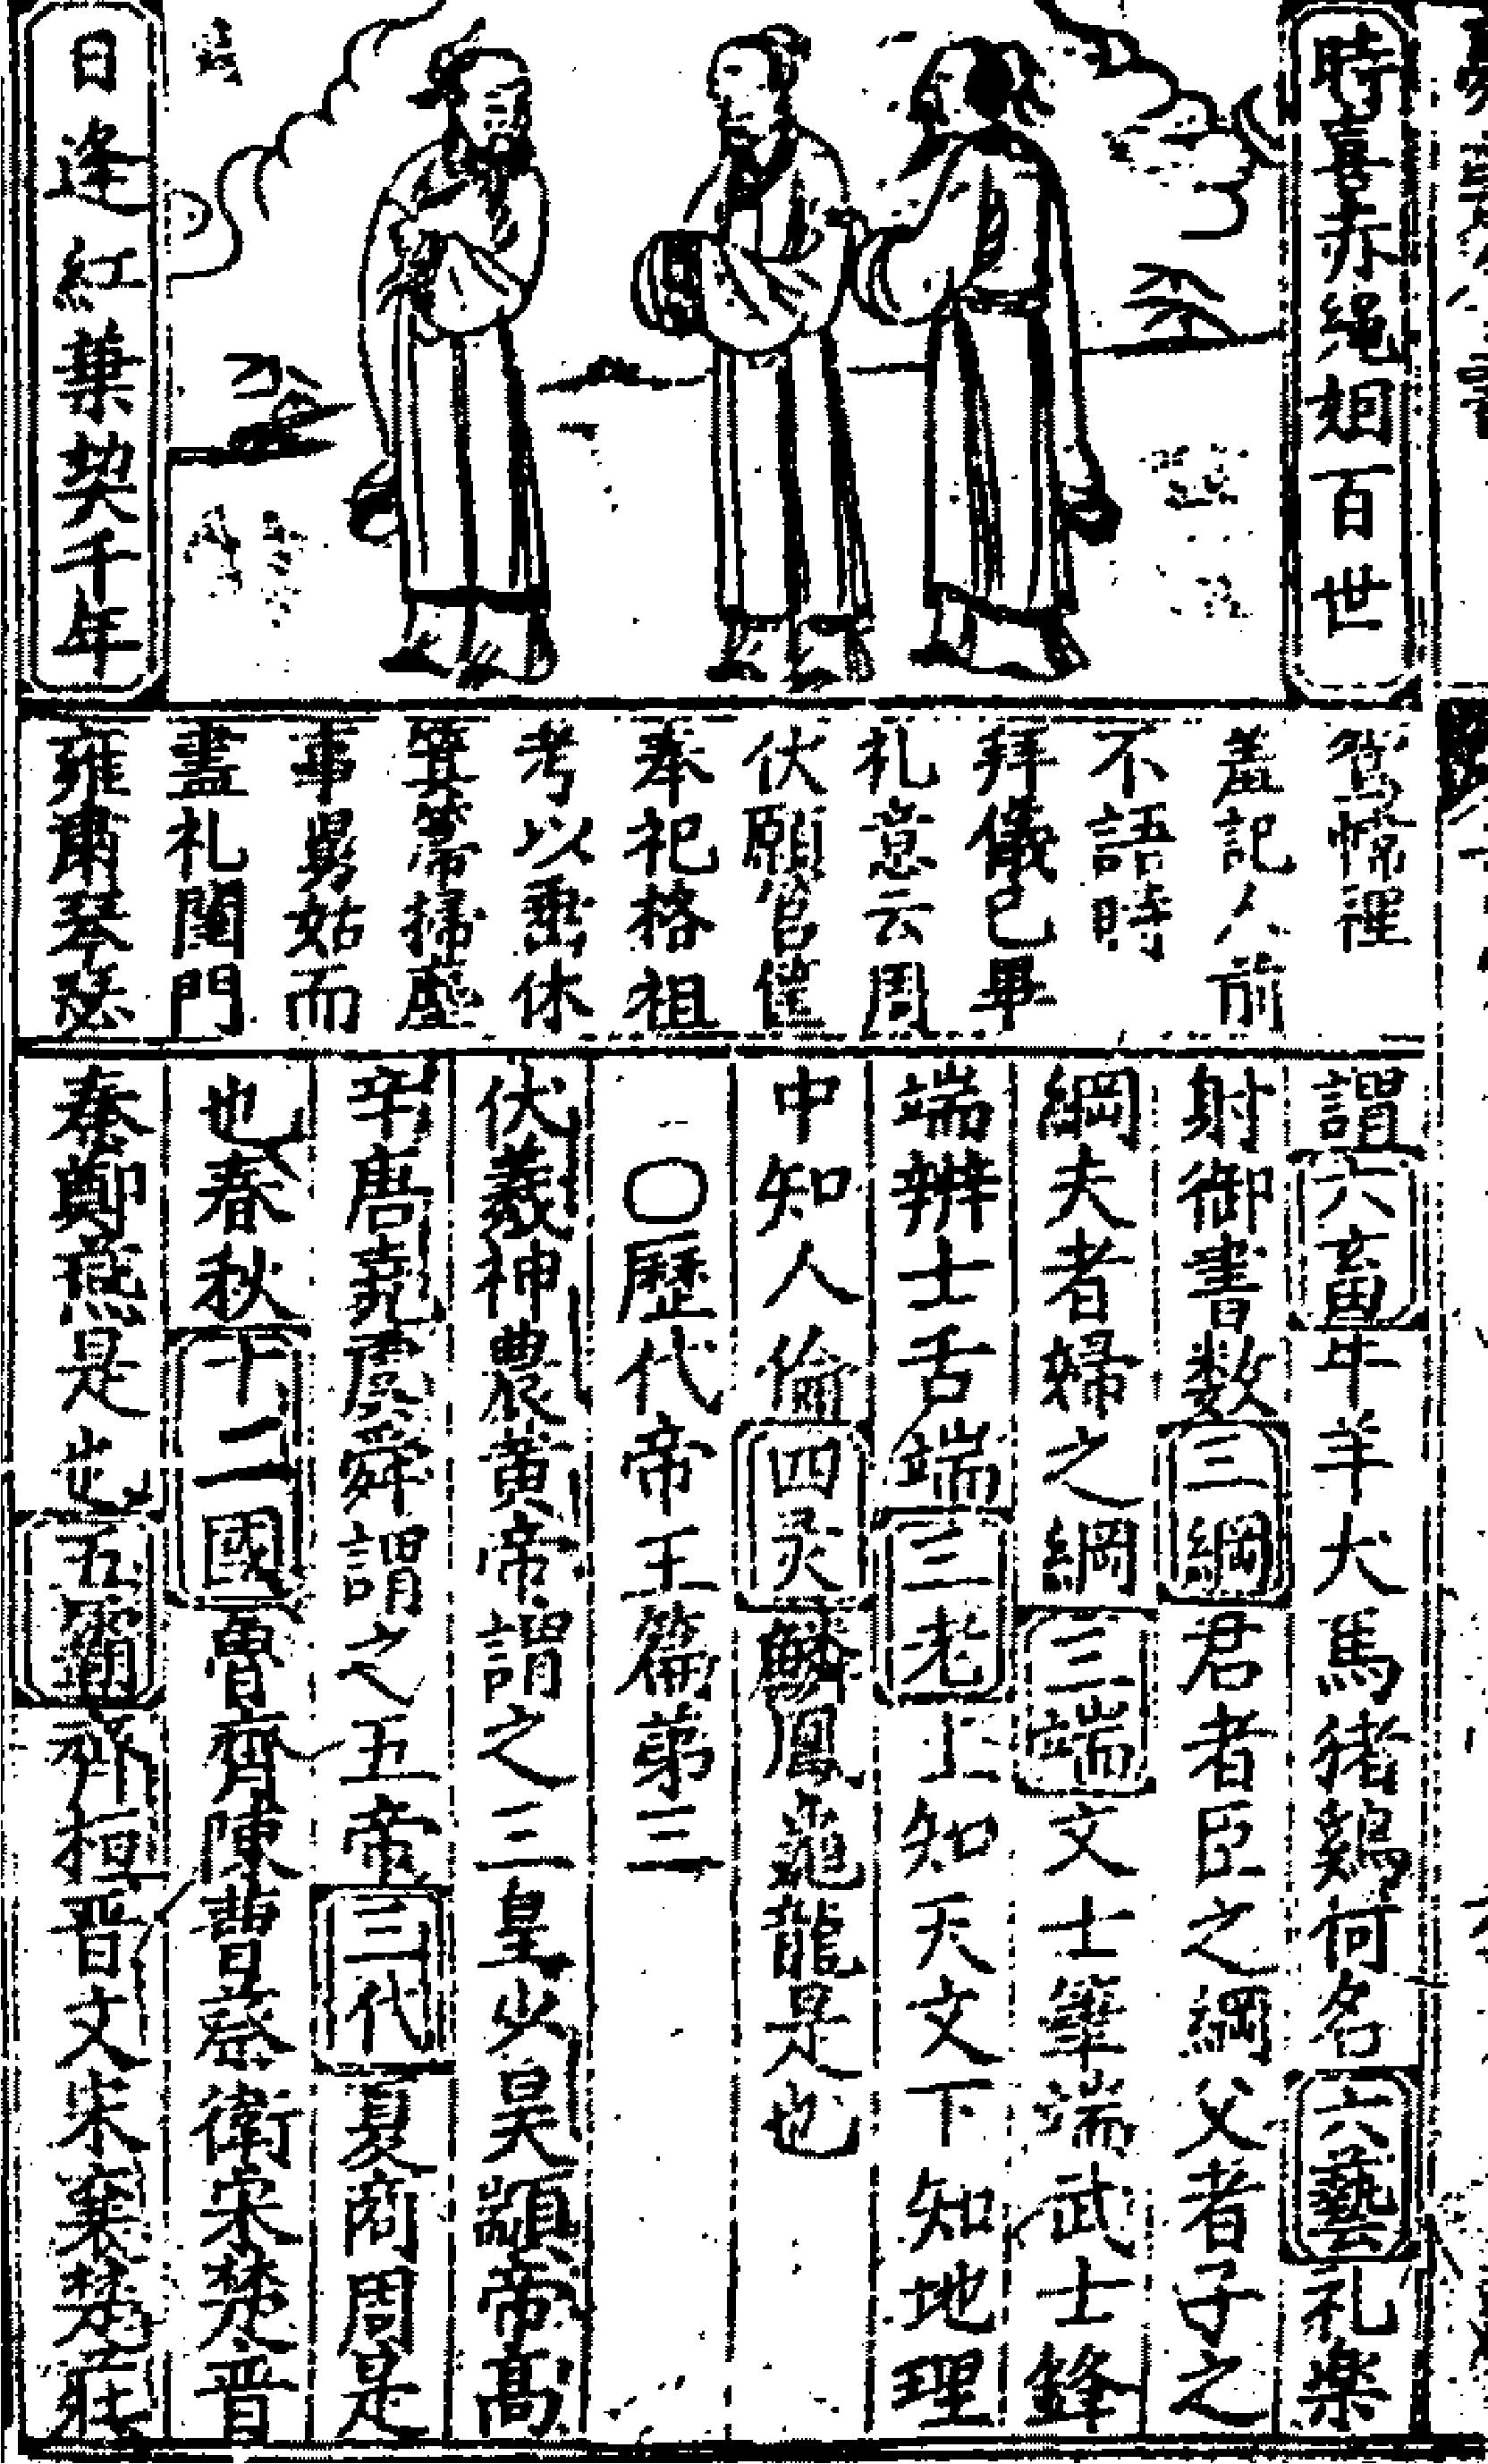 時喜赤繩姻百世
日逢紅葉契千年
鴛幃裡
羞記人前
不語時
拜儀已畢
礼意云周
伏願官僅
奉祀格祖
考以垂休
箕箒掃塵
事舅姑而
盡礼閨門
雍肅琴瑟
謂六畜牛羊犬馬猪鷄何名六藝礼楽
射御書数三綱君者臣之綱父者子之
綱夫者婦之綱三端文士筆端武士鋒
端辨士舌端三老上知天文下知地理
中知人倫四灵麟鳳龜龍是也
〇歷代帝王篇第三
伏羲神農黃帝謂之三皇少昊顓帝高
辛唐堯虞舜謂之五帝三代夏商周是
也春秋十二國魯齊陳曹蔡衛宋楚晋
秦鄭燕是也五霸齊桓晋文宋襄楚莊